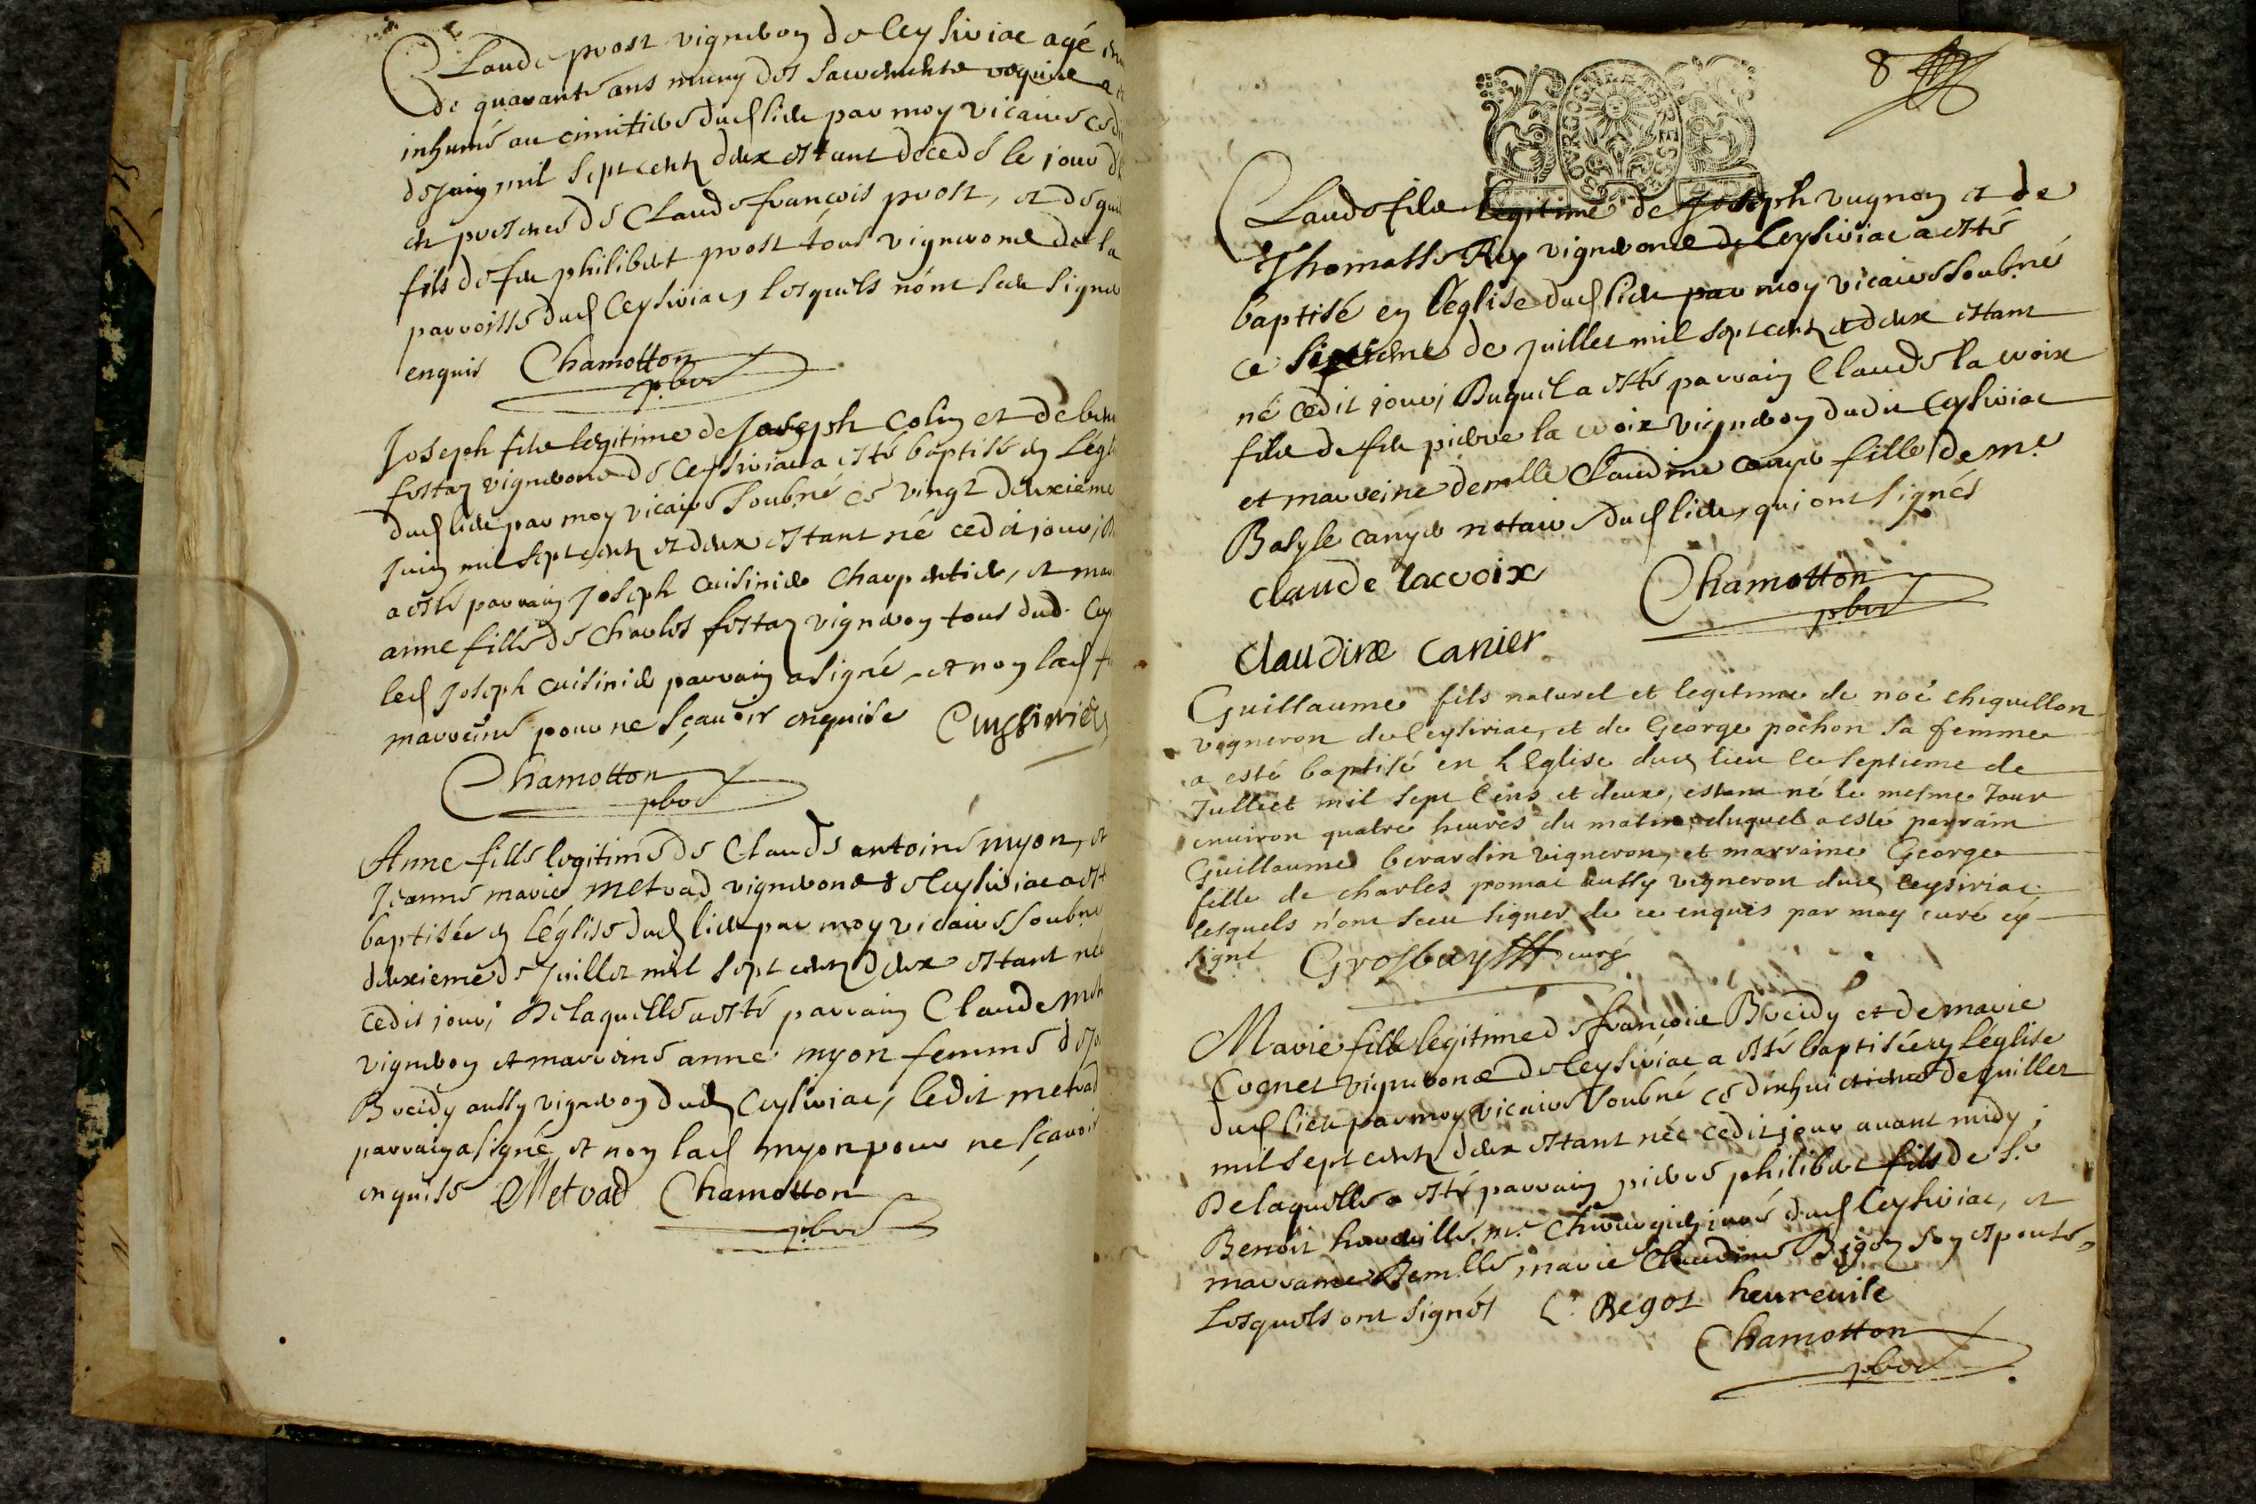 Claude prost vigneron de Ceysiriac agé
de quarante ans muny des sacrements requise a
inhumé au cimitiere dud lieu par moy vicaire ce
de juin mil sept cent deux estant decedé le jour
en presence de Claude françois prost, et de
fils de feu philibert prost tous vignerons de la
parroisse dud Ceysiriac, lesquels nónt sceu signer
enquis Chamotton
pbre
Joseph fils legitime de Joseph Colin et de
festaz vignerons de Ceysiriac a esté baptisé en Légl
dud lieu par moy vicaire soubné ce vingt deuxieme
Juin mil sept cent et deux estant né cedit jour,
a esté parrain Joseph cuisinier charpentier, et mar
anne fille de Charles festaz vigneron tous dud. Cey
led Joseph cuisinier parrain a signé, et non lad
marreine pour ne sçavoir enquise Cuyssinier
Chamotton
pbre
Anne fille legitime de Claude antoine myon, et
Jeanne marie metrad vignerons de Ceysiriac a est
baptisée en Léglise dud lieu par moy vicaire soubné
deuxieme de juillet mil sept cent deux estant née
cedit jour, Delaquelle a esté parrain Claude met
vigneron et marreine anne myon femme de jo
Breidy aussy vigneron dud Ceysiriac, ledit metrad
parrain a signé et non lad myon pour ne sçavoir
enquise Metrad Chamotton
pbre
8
BOVRGOGNE ET BRESSE
Claude fils legitime de Joseph vugnon et de
Thomasse Rey vignerons de Ceysiriac a esté
baptisé en léglise dud lieu par moy vicaire soubné
ce sixieme de juillet mil sept cent et deux estant
né cedit jour, Duquel a esté parrain Claude la croix
fils de feu pierre la croix vigneron dudit Ceysiriac
et marreine demlle Claudine canyer fille de mr
Basyle canyer notaire dud lieu, qui ont signés
claude lacroix Chamotton
pbre
claudine canier
Guillaume fils naturel et legitime de noé chiquillon
vigneron de Ceysiriac, et de George pochon sa femme
a esté baptisé en LEglise dud lieu le septieme de
Julliet mil sept Cens et deux, estant né le mesme Jour
environ quatre heures du matin duquel a esté parrain
Guillaume berardin vigneron, et marraine George
fille de charles pomat aussy vigneron dud Ceysiriac
lesquels n'ont sceu signer de ce enquis par moy curé cy
signé Grosbuy curé
Marie fille legitime de françois Breidy et de marie
Cognet vignerons de Ceysiriac a esté baptisée en léglise
dud lieu par moy vicaire soubné ce dixhuictieme de juillet
mil sept cent deux estant née cedit jour avant midy,
Delaquelle a esté parrain pierre philibert fils de sr
Benoit heureuille, mr Chirurgien juré dud Ceysiriac, et
marraine Demlle marie Claudine Begoz son espouse,
Lesquels ont signés C. Begoz heureuile
Chamotton
pbre